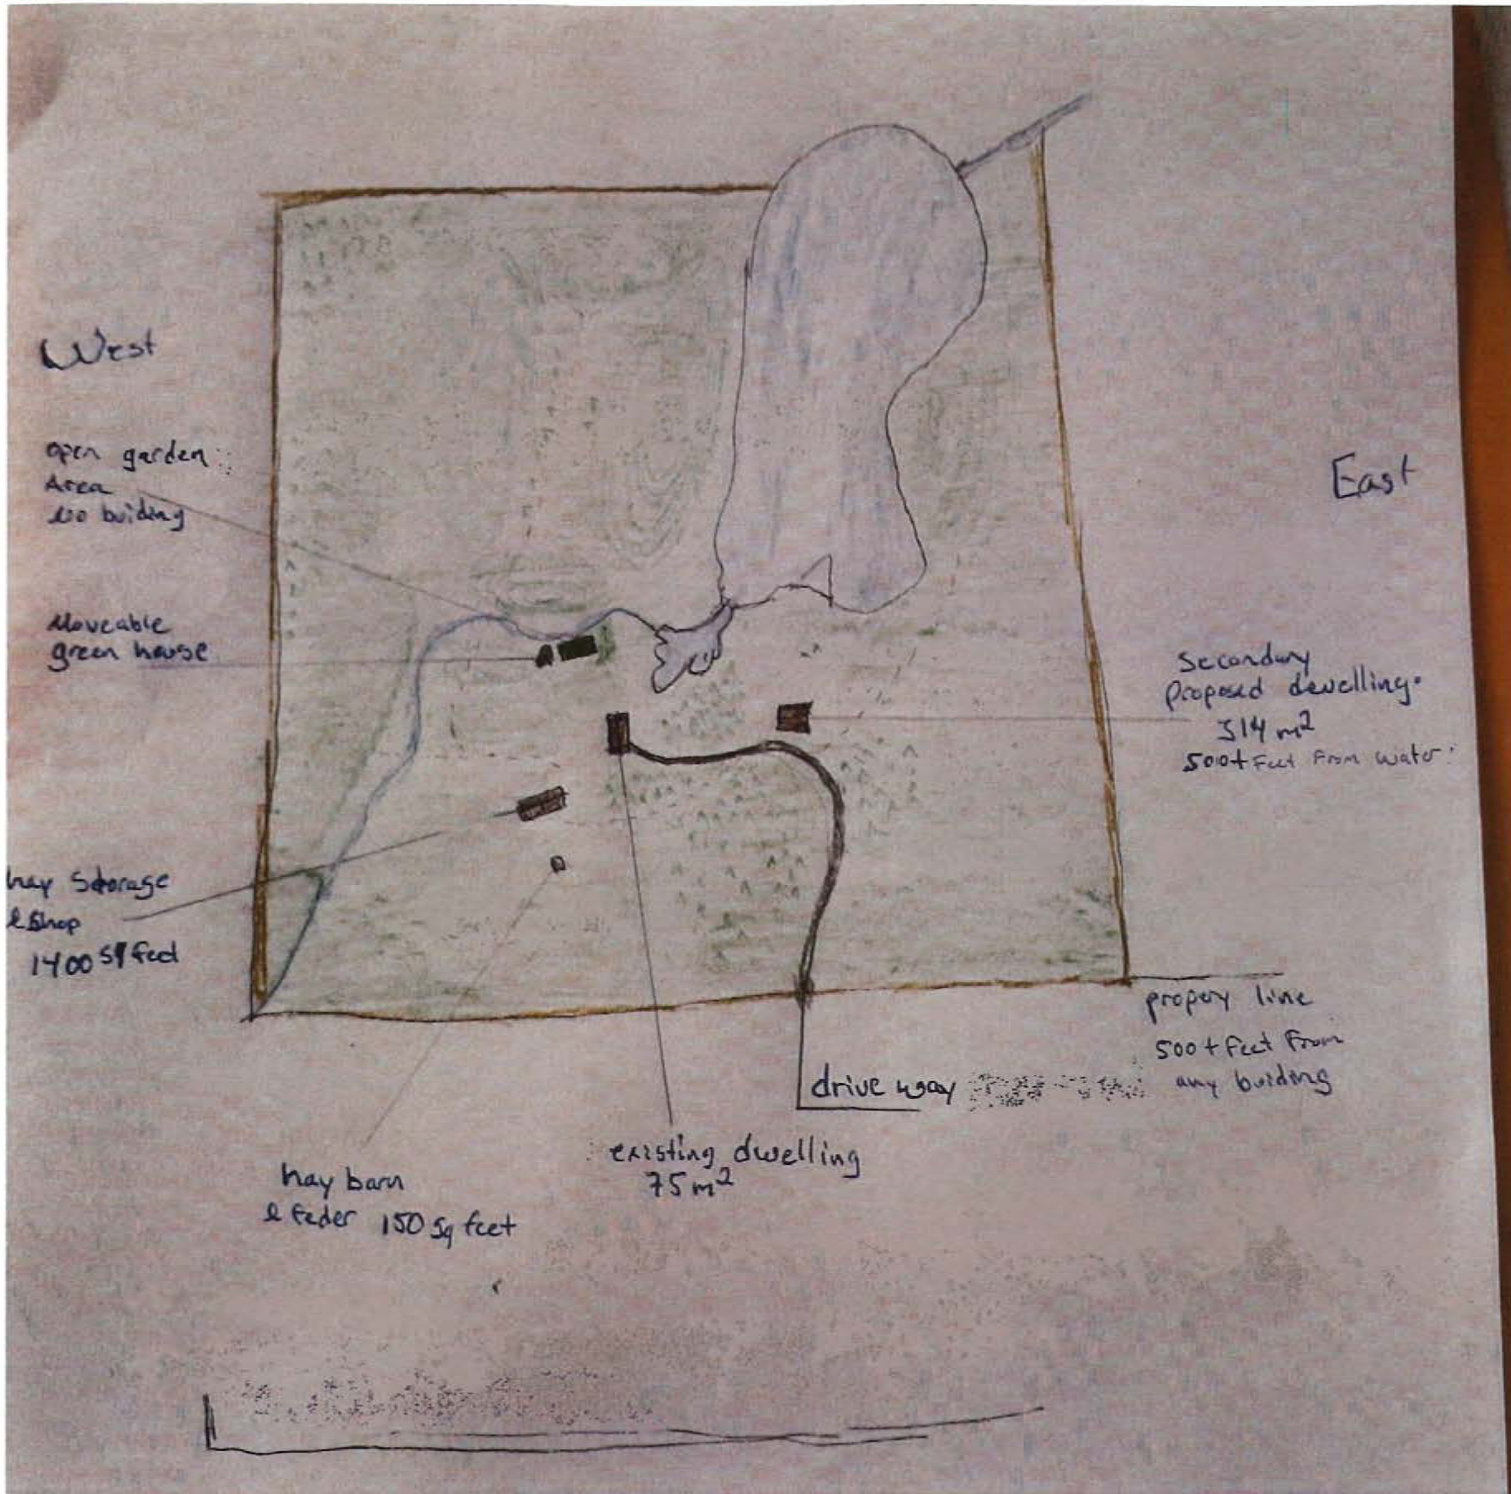 West
open garden
Area
No buiding
Moveable
green house
East
Secondary
proposed dewelling.
314 m²
500+ Feet From water.
hay Storage
& Shop
1400 sq feet
propery line
500 + feet From
any buiding
drive way
existing dwelling
75 m²
hay barn
& feder 150 sq feet